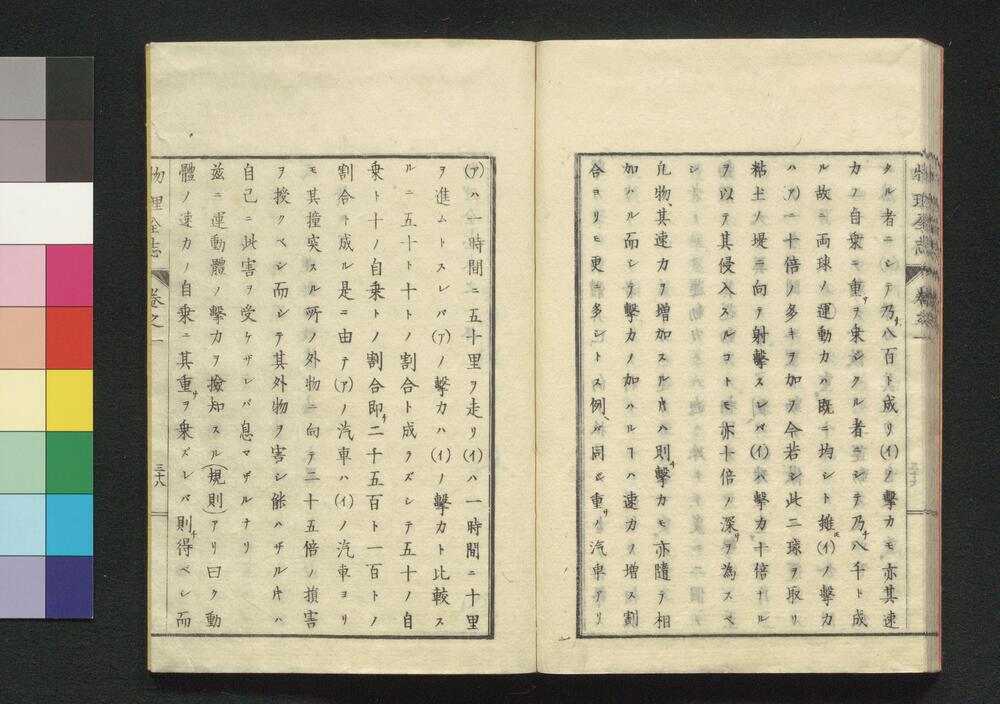 タル者ニシテ乃八百ト成リ(イ)ノ擊力モ亦其速
力ノ自乗ニ重ヲ乗シタル者ニシテ乃八千ト成
ル故ニ両球ノ運動力ハ既ニ均シト雖(イ)ノ擊力
ハ(ア)ニ十倍ノ多キヲ加フ今若シ此二球ヲ取リ
粘土ノ堤ニ向テ射擊スレバ(イ)ハ擊力十倍ナル
ヲ以テ其侵入スルコトモ亦十倍ノ深ヲ為スベ
シ
凡物其速力ヲ增加スル片ハ則擊力モ亦隨テ相
加ハル而シテ擊力ノ加ハルヿハ速力ノ增ス割
合ヨリモ更ニ多シトス例ハ同シ重ノ汽車アリ
物理全志
(ア)ハ一時間ニ五十里ヲ走リ(イ)ハ一時間ニ十里
ヲ進ムトスレバ(ア)ノ擊力ハ(イ)ノ擊力ト比較ス
ルニ五十ト十トノ割合ト成ラズシテ五十ノ自
乗ト十ノ自乗トノ割合即二千五百ト一百トノ
割合ト成ル是ニ由テ(ア)ノ汽車ハ(イ)ノ汽車ヨリ
モ其撞突スル所ノ外物ニ向テ二十五倍ノ損害
ヲ授クベシ而シテ其外物ヲ害シ能ハザル片ハ
自己ニ此害ヲ受ケザレバ息マザルナリ
茲ニ運動體ノ擊力ヲ撿知スル(規則)アリ曰ク動
體ノ速力ノ自乗ニ其重ヲ乗ズレバ則得ベシ而
物理全志 卷之一 三十八